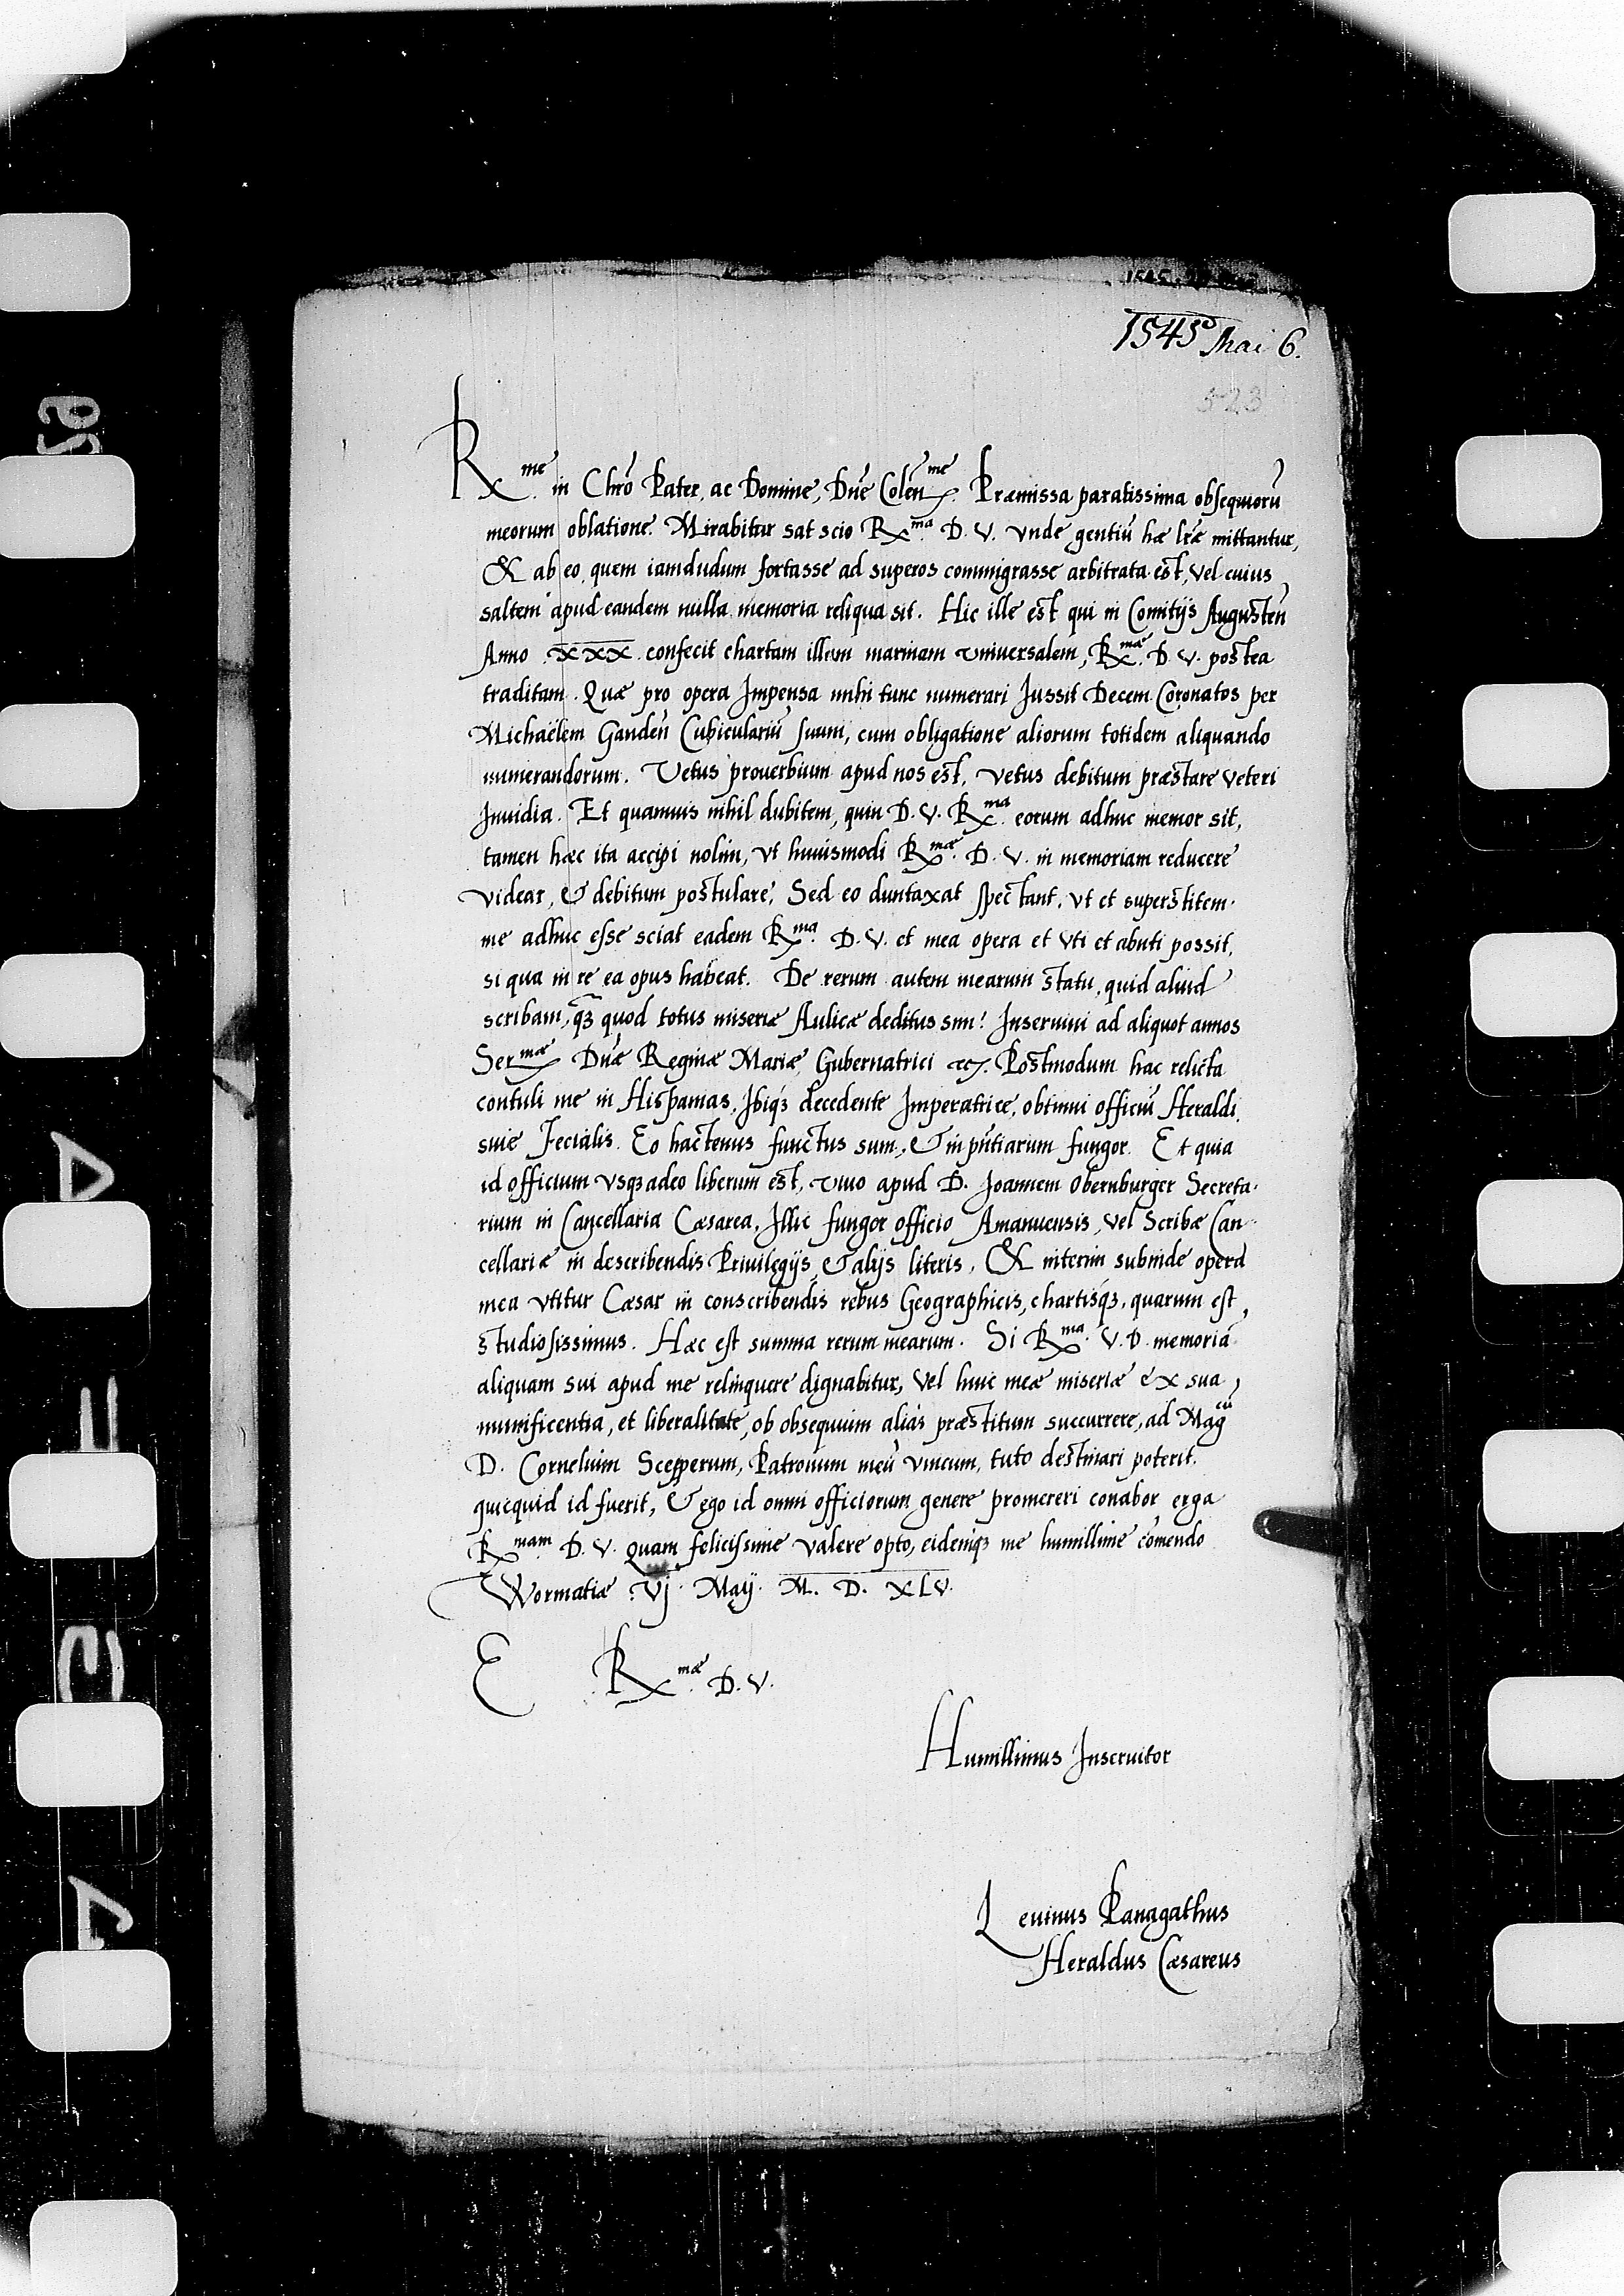 1545 Mai 6.
523
R.me in Chrō Pater, ac Domine, Dn̄e Colen.me Præmissa paratissima obsequiorū
meorum oblatione. Mirabitur sat scio R.ma D. V. vnde gentiū hæ lr̄æ mittantur,
& ab eo, quem iamdudum fortasse ad superos commigrasse arbitrata est, vel cuius
saltem apud eandem nulla memoria reliqua sit. Hic ille est qui in Comitijs Augusten̄
Anno XXX confecit chartam illam marinam vniuersalem, R.mæ D. V. postea
traditam. Quæ pro opera Impensa mihi tunc numerari Jussit Decem Coronatos per
Michaëlem Ganden̄ Cubiculariū suum, cum obligatione aliorum totidem aliquando
numerandorum. Vetus prouerbium apud nos est, vetus debitum præstare veteri
Jnuidia. Et quamuis nihil dubitem, quin D. V. R.ma eorum adhuc memor sit,
tamen hæc ita accipi nolim, vt huiusmodi R.mæ D. V. in memoriam reducere
videar, & debitum postulare, Sed eo duntaxat spectant, vt et superstitem
me adhuc esse sciat eadem R.ma D. V. et mea opera et vti et abuti possit,
si qua in re ea opus habeat. De rerum autem mearum statu, quid aliud
scribam, q̃ꝫ quod totus miseriæ Aulicæ deditus sim? Inseruiui ad aliquot annos
Ser.mæ Dn̄æ Reginæ Mariæ, Gubernatrici etc. Postmodum hac relicta
contuli me in Hispanias, Jbiqꝫ decedente Imperatrice, obtinui officiū Heraldi,
siue Fecialis. Eo hactenus functus sum, & in pn̄tiarum fungor. Et quia
id officium vsqꝫ adeo liberum est, viuo apud D. Joannem Obernburger Secreta-
rium in Cancellaria Cæsarea, Illic fungor officio Amanuensis, vel Scribæ Can-
cellariæ in describendis Priuilegijs, & alijs literis, & interim subinde opera
mea vtitur Cæsar in conscribendis rebus Geographicis, chartisqꝫ, quarum est
studiosissimus. Hæc est summa rerum mearum. Si R.ma V. D. memoriā
aliquam sui apud me relinquere dignabitur, vel huic meæ miseriæ ex sua
munificentia, et liberalitate, ob obsequium aliàs præstitum succurrere, ad Mag.cū
D. Cornelium Scepperum, Patronum meū vnicum, tuto destinari poterit,
quicquid id fuerit, & ego id omni officiorum genere promereri conabor erga
R.mam D. V. quam felicissime valere opto, eidemqꝫ me humillime cōmendo
Wormatiæ vj Maij M. D. XLV.
E R.mæ D. V.
Humillimus Inseruitor
Leuinus Panagathus
Heraldus Cæsareus